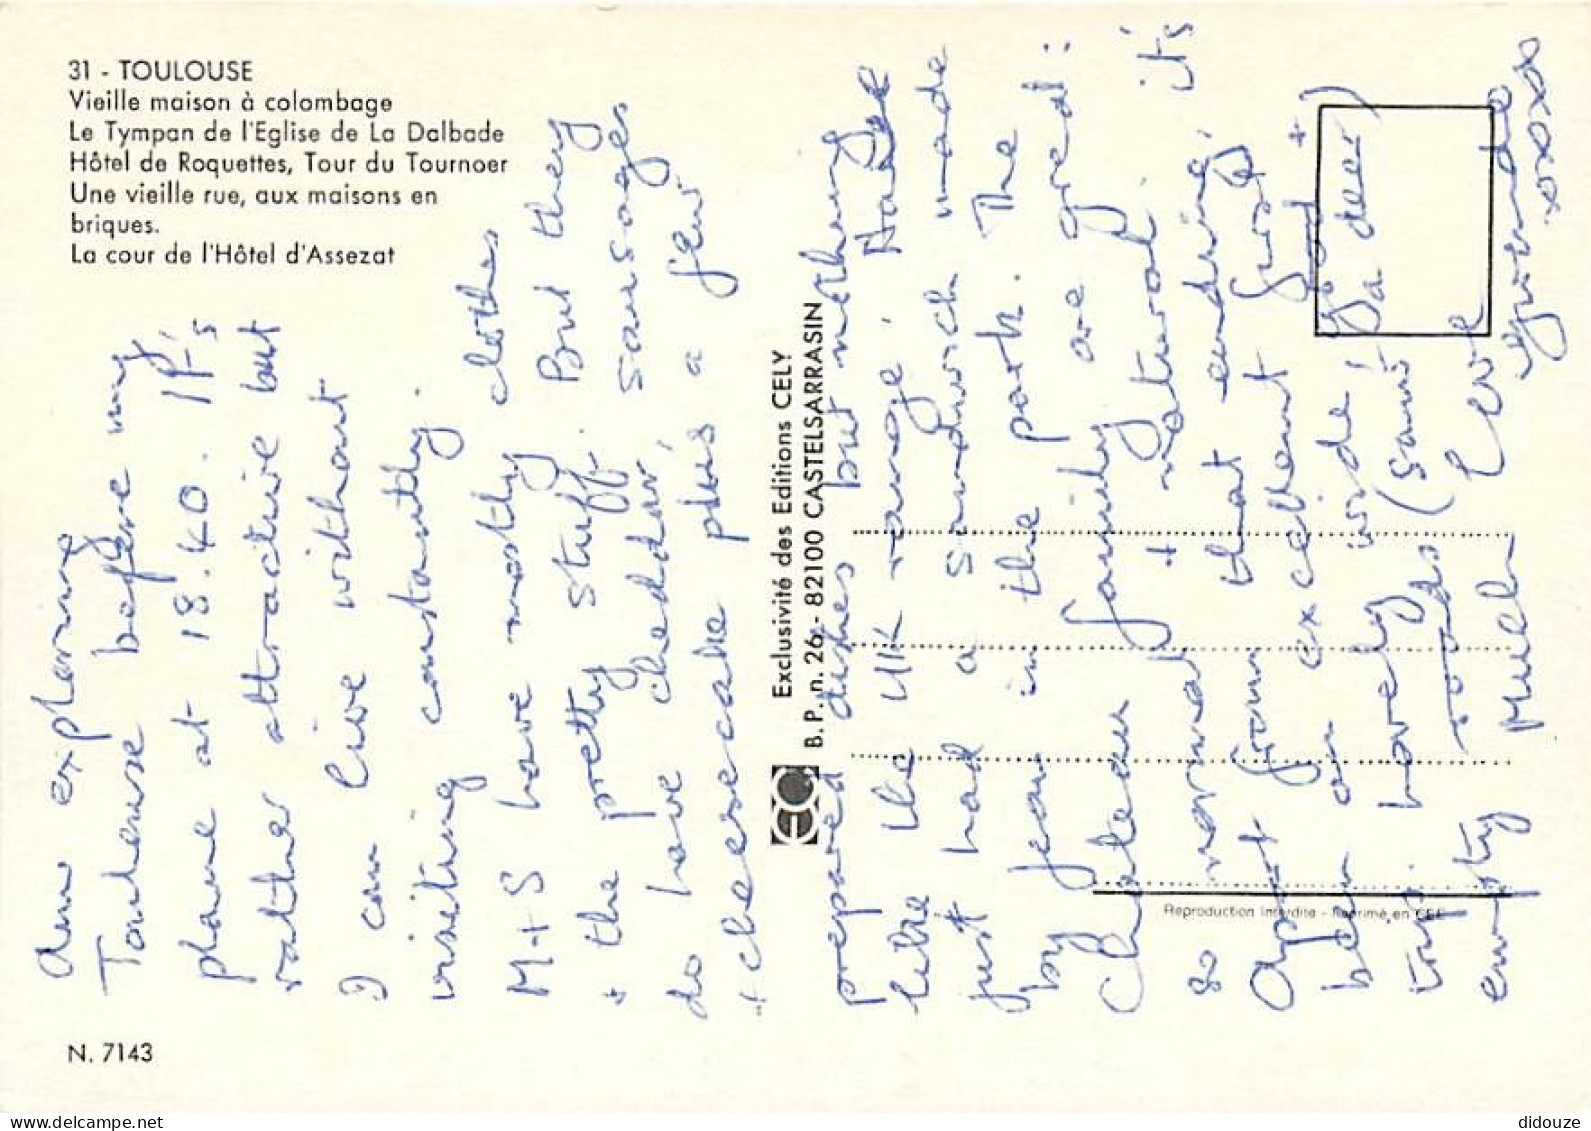 31 - TOULOUSE
Vieille maison à colombage
Le Tympan de l'Eglise de La Dalbade
Hôtel de Roquettes, Tour du Tournoer
Une vieille rue, aux maisons en
briques.
La cour de l'Hôtel d'Assezat
Am exploring
Toulouse before my
plane at 18.40. It's
rather attractive but
I can live without
visiting constantly.
M+S have mostly clothes
+ the pretty stuff. But they
do have cheddar, sausages
+ cheesecake plus a few
Exclusivité des Editions CELY
B.P. n. 26 - 82100 CASTELSARRASIN
prepared dishes but nothing
like the UK range. Have
just had a sandwich made
by Jean in the park. The
Chateau family are great:
so normal + natural. It's
Apart from that endring,
been an excellent
trip. Lovely wide,
empty roads (Sauf
Much love
xoxox
Reproduction interdite - Imprimé en CEE
N. 7143
didouze